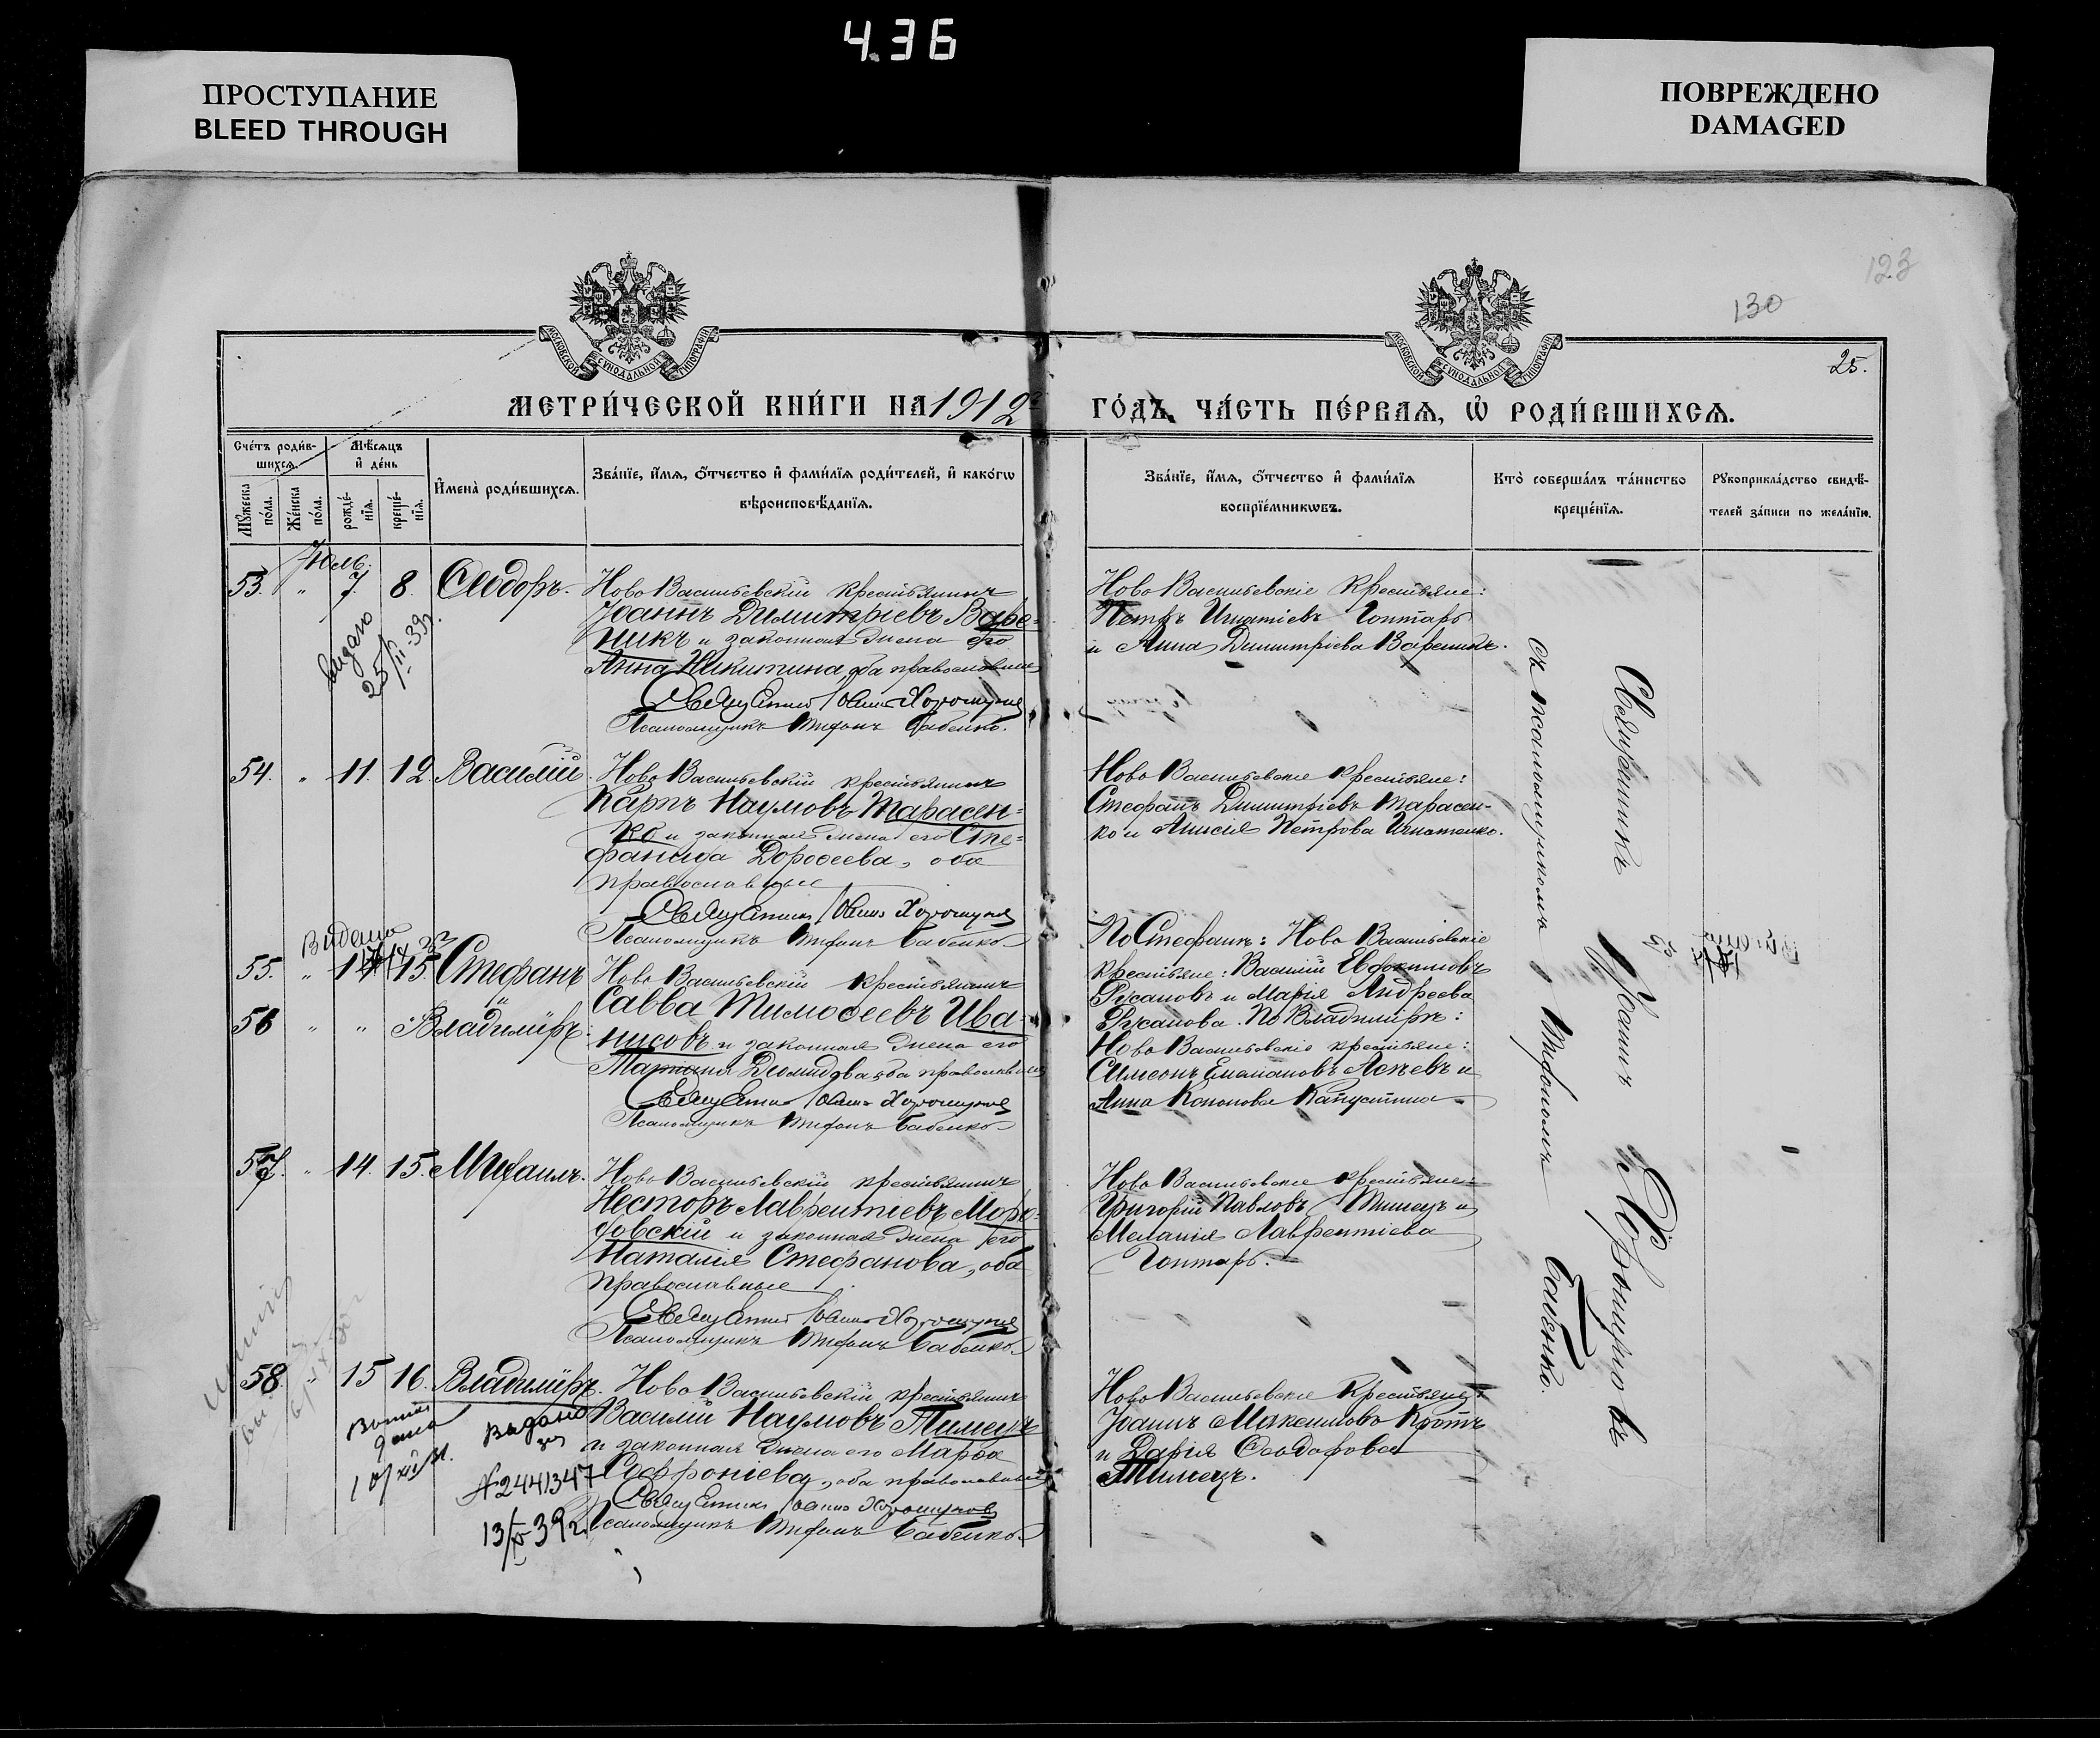 4.36
ПРОСТУПАНИЕ
BLEED THROUGH
ПОВРЕЖДЕНО
DAMAGED
123
130
25.
МОСКОВСКОЙ СѴНОДАЛЬНОЙ ТИПОГРАФІИ
МОСКОВСКОЙ СѴНОДАЛЬНОЙ ТИПОГРАФІИ
МЕТРИ́ЧЕСКОЙ КНИ́ГИ НА 1912 г
ГО́ДЪ, ЧА́СТЬ ПЕ́РВАѦ, Ѡ҆ РОДИ́ВШИХСѦ.
Сче́тъ роди́в-
шихсѧ.
Мꙋ́жеска по́ла.
Же́нска по́ла.
Мѣ́сѧцъ
и҆ де́нь
рожде́-
нїѧ.
креще́-
нїѧ.
И҆мена̀ роди́вшихсѧ.
Зва́нїе, и҆́мѧ, ѻ҆́тчество и҆ фами́лїѧ роди́телей, и҆ како́гѡ
вѣроисповѣ́данїѧ.
Зва́нїе, и҆́мѧ, ѻ҆́тчество и҆ фами́лїѧ
воспрїе́мникѡвъ.
Кто̀ соверша́лъ та́инство
креще́нїѧ.
Рꙋкоприкла́дство свидѣ́-
телей за́писи по жела́нїю.
Юль.
53. " 7. 8. Ѳеодоръ.
Ново Васильевскій крестьянинъ
Іоаннъ Димитріевъ Варе-
никъ и законная жена его
Анна Никитина, оба православные
Священникъ Іоаннъ Хорошунов
Псаломщикъ Трифонъ Бабенко.
Ново Васильевскіе крестьяне:
Петръ Игнатіевъ Гонтарь
и Анна Димитріева Вареникъ.
видано
25/II 39 г.
54. " 11. 12. Василій.
Ново Васильевскій крестьянинъ
Карпъ Наумовъ Тарасен-
ко и законная жена его Сте-
фанида Дороѳеева, оба
православные
Священникъ Іоаннъ Хорошунов
Псаломщикъ Трифонъ Бабенко
Ново Васильевскіе крестьяне:
Стефанъ Димитріевъ Тарасен-
ко и Анисія Петрова Игнатенко.
Видано
55. " 14 15. Стефанъ
56 " " " Владиміръ.
Ново Васильевскій крестьянинъ
Савва Тимоѳеевъ Ива-
нисовъ и законная жена его
оба православные
Священникъ Іоаннъ Хорошунов
Псаломщикъ Трифонъ Бабенко
По Стефанѣ: Ново Васильевскіе
крестьяне: Василій Евдокимовъ
Русановъ и Марія Андреева
Русанова. По Владимірѣ:
Ново Васильевскіе крестьяне:
Симеонъ и
Анна Кононова Капустина
57. " 14. 15. Михаилъ.
Ново Васильевскій крестьянинъ
Несторъ Лаврентіевъ
и законная жена его
Наталія Стефанова, оба
православные
Священникъ Іоаннъ Хорошунов
Псаломщикъ Трифонъ Бабенко
Ново Васильевскіе крестьяне:
Григорій Павловъ Тимецъ и
Меланія Лаврентіева
Гонтарь.
58. " 15 16. Владиміръ.
Ново Васильевскій крестьянинъ
Василій Наумовъ Тимецъ
и законная жена его Марѳа
Софроніева, оба православные
Священникъ Іоаннъ Хорошунов
Псаломщикъ Трифонъ Бабенко
Ново Васильевскіе крестьяне:
Іоаннъ Максимовъ Кротъ
и Дарія Ѳеодорова
Тимецъ.
Видано
за
№2441347
13/X 39 г.
Священникъ Іоаннъ
съ псаломщикомъ Трифономъ Бабенко.